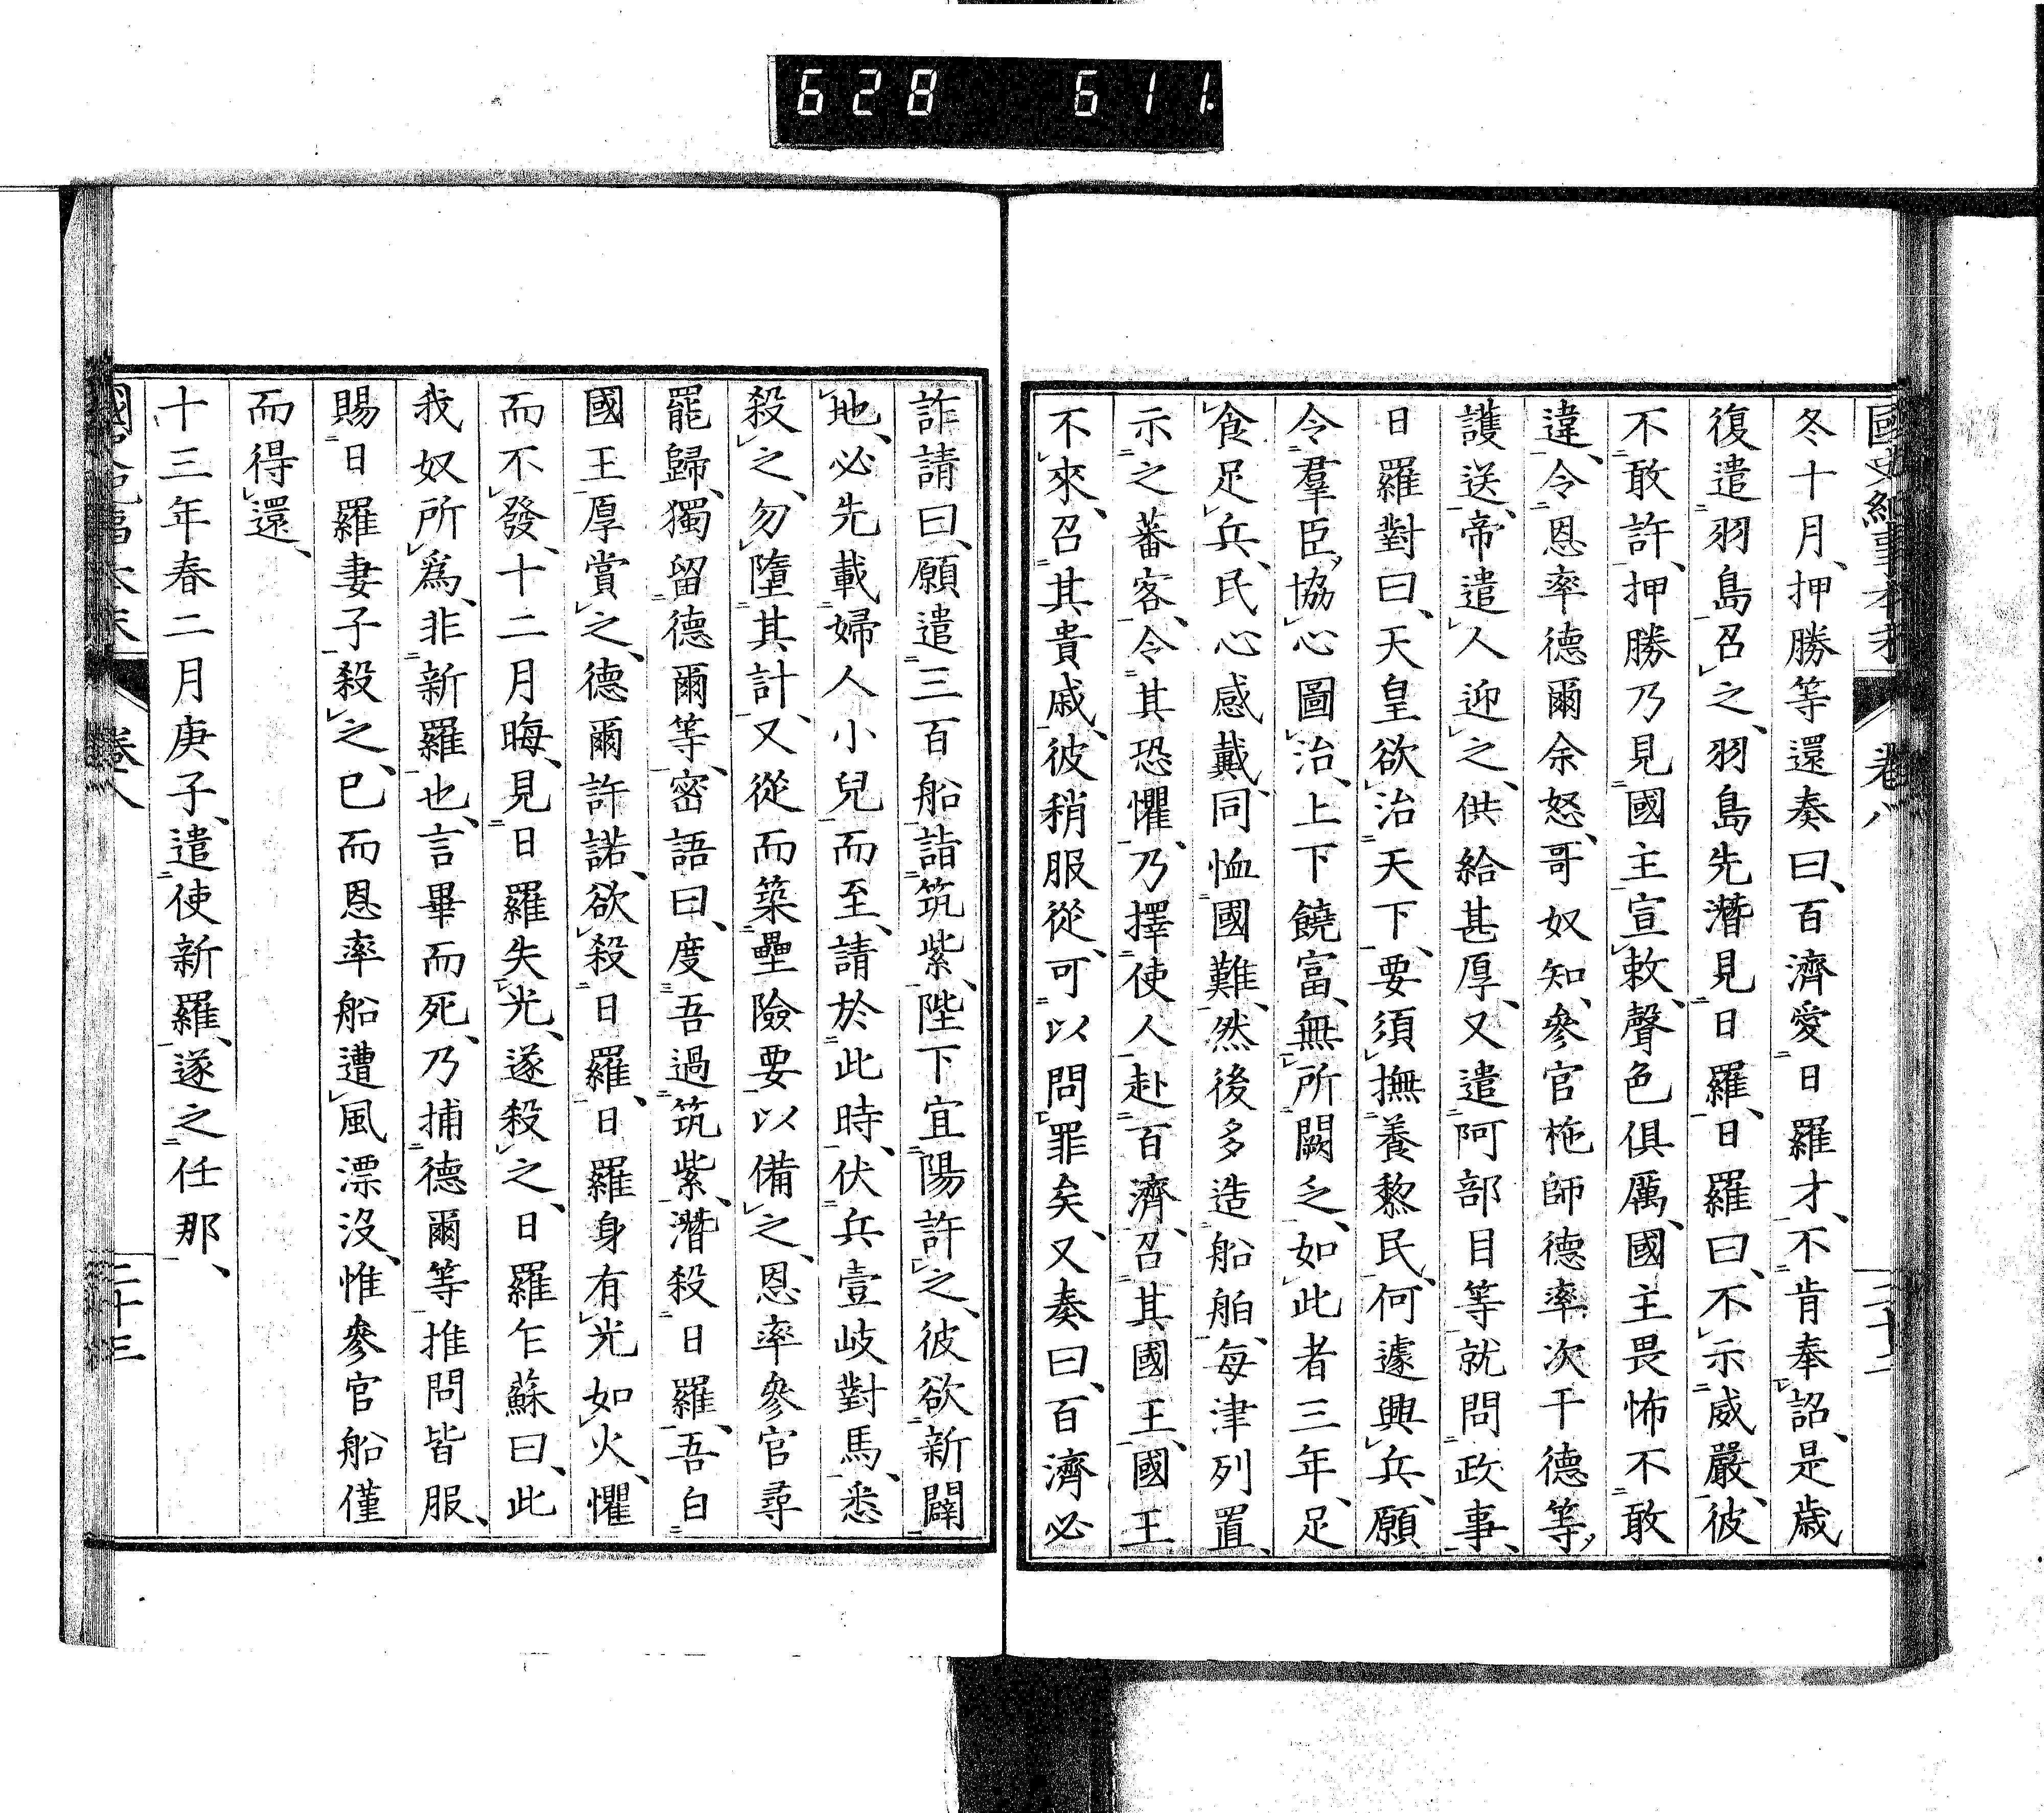 628 611
冬十月、押勝等還奏曰、百濟愛日羅才、不肯奉詔、是歲
復遣羽島召之、羽島先潛見日羅、日羅曰、不示威嚴、彼
不敢許、押勝乃見國主宣敕、聲色俱厲、國主畏怖不敢
違、令恩率德爾余怒、哥奴知、參官柂師德率次干德等、
護送、帝遣人迎之、供給甚厚、又遣阿部目等就問政事、
日羅對曰、天皇欲治天下、要須撫養黎民、何遽興兵、願
令羣臣、協心圖治、上下饒富、無所闕乏、如此者三年、足
食足兵、民心感戴、同恤國難、然後多造船舶、每津列置、
示之蕃客、令其恐懼、乃擇使人赴百濟、召其國王、國王
不來、召其貴戚、彼稍服從、可以問罪矣、又奏曰、百濟必
詐請曰、願遣三百船詣筑紫、陛下宜陽許之、彼欲新闢
地、必先載婦人小兒而至、請於此時、伏兵壹岐對馬、悉
殺之、勿墮其計、又從而築壘險要以備之、恩率參官尋
罷歸、獨留德爾等、密語曰、度吾過筑紫、潛殺日羅、吾白
國王厚賞之、德爾許諾、欲殺日羅、日羅身有光如火、懼
而不發、十二月晦、見日羅失光、遂殺之、日羅乍蘇曰、此
我奴所爲、非新羅也、言畢而死、乃捕德爾等推問皆服、
賜日羅妻子殺之、已而恩率船遭風漂沒、惟參官船僅
而得還、
十三年春二月庚子、遣使新羅、遂之任那、
卷八